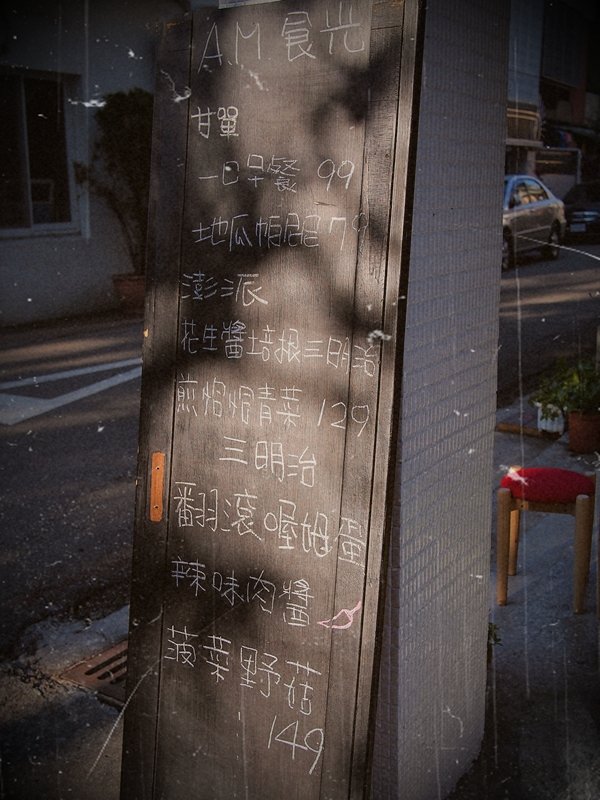 A.M 食光
甘單
一口早餐 99
地瓜帕尼尼 79
澎派
花生醬培根三明治
煎焙根青菜 129
三明治
翻滾喔姆蛋
辣味肉醬
菠菜野菇
149